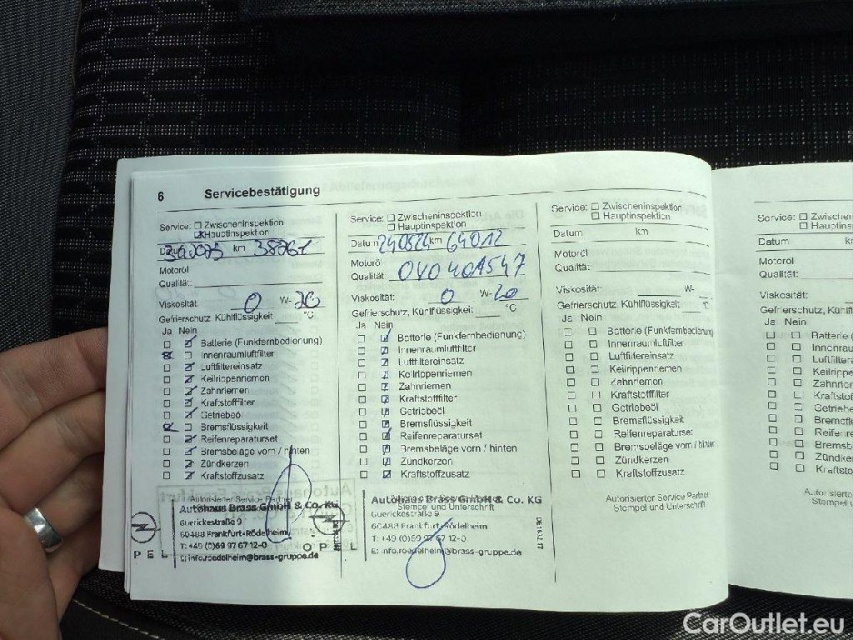 6 Servicebestätigung
Service: Zwischeninspektion
Hauptinspektion
km 38761
Motoröl
Qualität:
Viskosität: 0 W- 20
Gefrierschutz, Kühlflüssigkeit °C
Ja Nein
Batterie (Funkfernbedienung)
Innenraumluftfilter
Luftfiltereinsatz
Keilrippenriemen
Zahnriemen
Kraftstofffilter
Getriebeöl
Bremsflüssigkeit
Reifenreparaturset
Bremsbeläge vorn / hinten
Zündkerzen
Kraftstoffzusatz
Autorisierter Service Partner
Autohaus Brass GmbH & Co. KG
Guerickestraße 9
60488 Frankfurt-Rödelheim
T: +49 (0)69 97 67 12-0
E: info.roedelheim@brass-gruppe.de
OPEL
Service: Zwischeninspektion
Hauptinspektion
Datum 240824 km 64012
Motoröl
Qualität 040401547
Viskosität: 0 W- 20
Gefrierschutz, Kühlflüssigkeit: °C
Ja Nein
Batterie (Funkfernbedienung)
Innenraumluftfilter
Luftfiltereinsatz
Keilrippenriemen
Zahnriemen
Kraftstofffilter
Getriebeöl
Bremsflüssigkeit
Reifenreparaturset
Bremsbeläge vorn / hinten
Zündkerzen
Kraftstoffzusatz
Autohaus Brass GmbH & Co. KG
Stempel und Unterschrift
Guerickestraße 9
60488 Frankfurt-Rödelheim
T: +49 (0)69 97 67 12-0
E: info.roedelheim@brass-gruppe.de
Service: Zwischeninspektion
Hauptinspektion
Datum km
Motoröl
Qualität:
Viskosität: W-
Gefrierschutz, Kühlflüssigkeit: °C
Ja Nein
Batterie (Funkfernbedienung)
Innenraumluftfilter
Luftfiltereinsatz
Keilrippenriemen
Zahnriemen
Kraftstofffilter
Getriebeöl
Bremsflüssigkeit
Reifenreparaturset
Bremsbeläge vorn / hinten
Zündkerzen
Kraftstoffzusatz
Autorisierter Service Partner
Stempel und Unterschrift
Service: Zwischen
Hauptins
Datum km
Motoröl
Qualität:
Viskosität:
Gefrierschutz, Kühl
Ja Nein
Batterie
Innenrau
Luftfilter
Keilrippe
Zahnrie
Kraftstof
Getriebe
Bremsfl
Reifenre
Bremsb
Zündke
Kraftsto
Autorisierte
Stempel
CarOutlet.eu